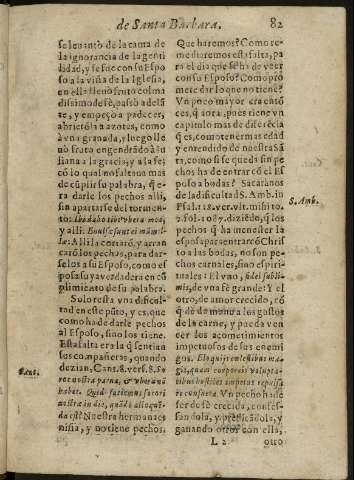 de Santa Barbara. 82
se leuantò de la cama de
la ignorancia de la genti
lidad, y se fue con su Espo
so a la viña de la Iglesia,
en ella lleuò fruto colma
dissimo de fè, passò adelã
te, y empeçò a padecer,
abrieròla a azotes, como
à vna granada, y luego lle
uò fruto engendrãdo à Iu
liana a la gracia, y a la fe;
cõ lo qual no faltaua mas
de cũplir su palabra, q̃ e-
ra darle los pechos alli,
sin apartarse del tormen-
to: Ibi dabo tibi vbera mea,
y alli
la: Alli la cortarõ, y arran
carõ los pechos, para dar-
selos a su Esposo, como es
posa suya verdadera en cũ
plimiento de su palabra.
Solo resta vna dificul-
tad en este pũto, y es, que
como ha de darle pechos
al Esposo, sino los tiene.
Esta falta era la q̃ sentian
sus compañeras, quando
dezian, Cant. 8. vers. 8. So
ror nostra parua, & vbera nõ
habet. Quid faciemus sorori
nostræ in die, quãdo alloquẽ-
da est? Nuestra hermana es
niña, y no tiene pechos,
Cant.
Que haremos? Como re-
mediaremos esta falta, pa-
ra el dia que se ha de veer
con su Esposo? Como pro
mete dar lo que no tiene?
Vn poco mayor era entõ
ces, q̃ aora, pues tiene vn
capitulo mas de diferẽcia
q̃ es, como tener mas edad
y entendido de nuestra Sã
ta, como si se queda sin pe
chos ha de entrar cõ el Es
poso a bodas? Sacaranos
de la dificultad S. Amb. in
Psalt. 18. ver. vlt. mihi to.
2. fol. 1087. diziẽdo, q̃ los
pechos q̃ ha menester la
esposa para entrar cõ Chris
to a las bodas, no son pe-
chos carnales, sino espiri-
tuales: El vno, fidei subli-
mis, de vna fè grande: Y el
otro, de amor crecido, cõ
q̃ dè de mano a los gustos
de la carne, y pueda ven
cer los acometimientos
impetuosos de sus enemi
gos. Eloquijs cœlestibus ma-
gis, quam corporeis volupta-
tibus hostiles impetus repulsa
Vn pecho ha de
ser de fè crecida, confes-
sandola, y predicãdola, y
ganando otros con ella,
S. Amb.
L 2 otro